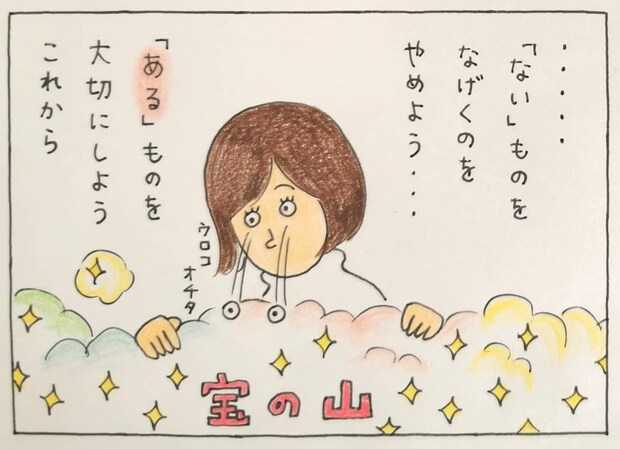 ・・・・・
「ない」ものを
なげくのを
やめよう・・・
「ある」ものを
大切にしよう
これから
ウロコ
オチタ
宝の山